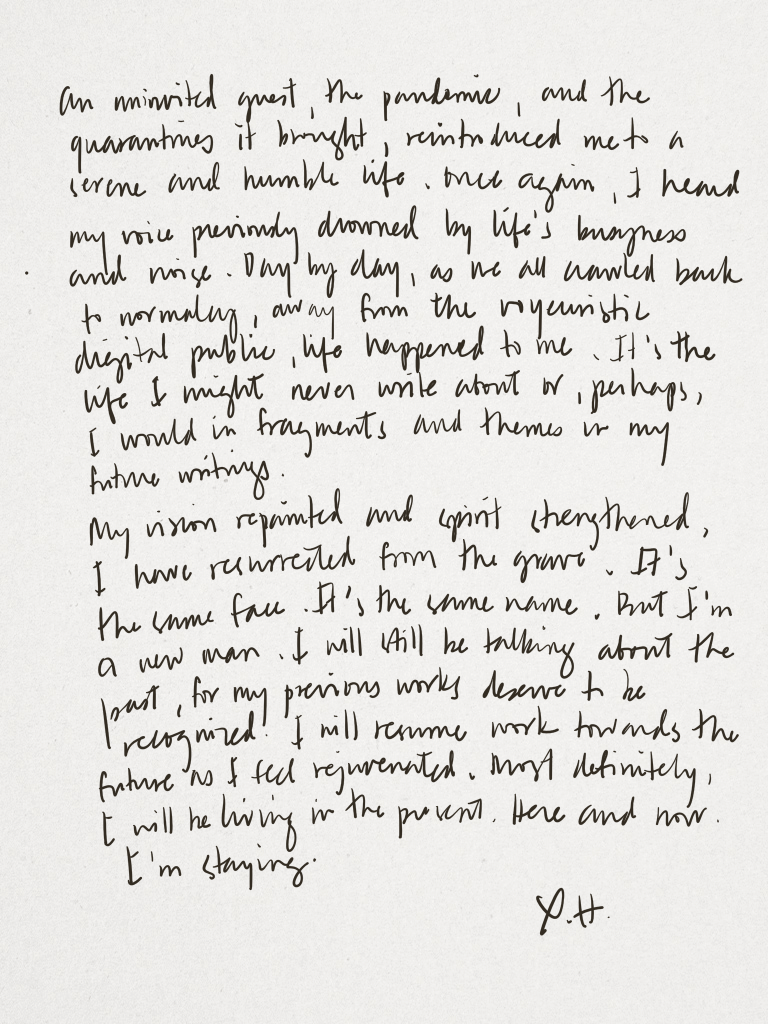 An uninvited guest, the pandemic, and the
quarantines it brought, reintroduced me to a
serene and humble life. Once again, I heard
my voice previously drowned by life's busyness
and noise. Day by day, as we all crawled back
to normalcy, away from the voyeuristic
digital public, life happened to me. It's the
life I might never write about or, perhaps,
I would in fragments and themes in my
future writings.
My vision repainted and spirit strengthened,
I have resurrected from the grave. It's
the same face. It's the same name. But I'm
a new man. I will still be talking about the
past, for my previous works deserve to be
recognized. I will resume work towards the
future as I feel rejuvenated. Most definitely,
I will be living in the present. Here and now.
I'm staying.